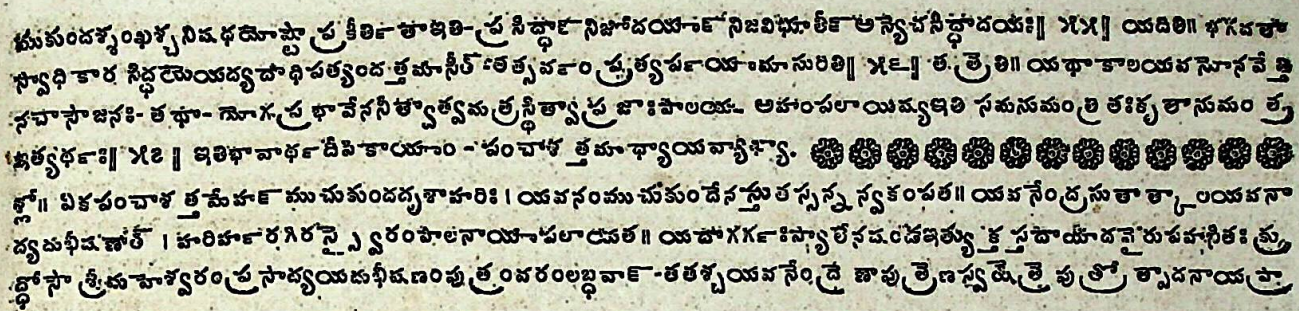 ముకుందశ్శంఖశ్చనిషధయోష్టౌ ప్రకీర్తితాఇతి- ప్రసిద్ధాన్ నిజోదయాన్ నిజవిభూతీన్ అన్యేచసిద్ధాదయః॥ ౫౫॥ యదితి॥ భగవతా
స్వాధికార సిద్ధయేయద్యదాధిపత్యంద త్తమాసీత్ తత్సర్వం ప్రత్యర్పయామాసురితి॥ ౫౬॥ త త్రైతి॥ యథా కాలయవనోనవేత్తి
నచాసౌజనః- తథా- యోగప్రభావేననీత్వాత్వమత్రస్థిత్వా ప్రజాఃపాలయ- అహంపలాయిష్యఇతి సమనుమంత్రితఃకృతానుమంత్ర
ఇత్యర్థః॥ ౫౭ ॥ ఇతిభావార్థదీపికాయాం - పంచాశత్తమాధ్యాయవ్యాఖ్యా.
శ్లో॥ ఏకపంచాశత్తమేహన్ ముచుకుందదృశాహరిః । యవనంముచుకుందేనస్తుతస్సన్నన్వకంపత॥ యవనేంద్రసుతాత్కాలయవనా
ద్యదుభీషణాత్ । హరిర్హరగిరస్స్వైరంపాలనాయాపలాయత॥ యదాగర్గఃస్యాలేనషండఇత్యుక్తస్తదాయాదవైరుపహసితః క్రు
ద్ధోసౌ శ్రీమహేశ్వరం ప్రసాద్యయదుభీషణంపుత్రంవరంలబ్ధవాన్ -తతశ్చయవనేంద్రేణాపుత్రేణస్వక్షేత్రే పుత్రోత్పాదనాయప్రా